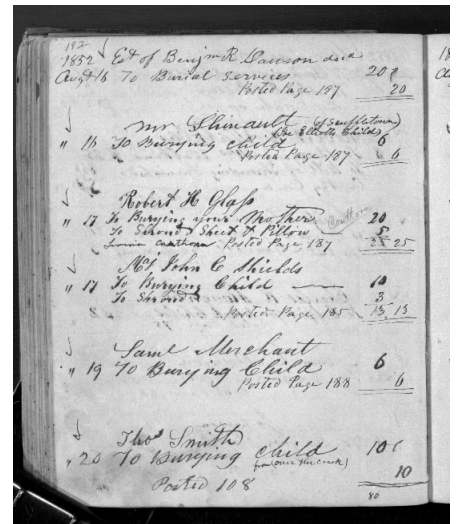 192
1852 Est of Benjm R Dawson decd
Augt 16 To Burial Services 20
Posted Page 187 20
Mr Shinault
Joe Elliotts Childs
" 16 To Burying Child 6
Posted Page 187 6
Robert H Glass
" 17 To Burying your Mother 20
To Shroud Sheet & Pillow 5
Posted Page 187 25 25
Mr John C Shields
" 17 To Burying Child 10
To Shroud 3
Posted Page 185 13 13
Saml Merchant
" 19 To Burying Child 6
Posted Page 188 6
Thos Smith
" 20 To Burying Child 10
(from over the creek) 10
Posted 108
80